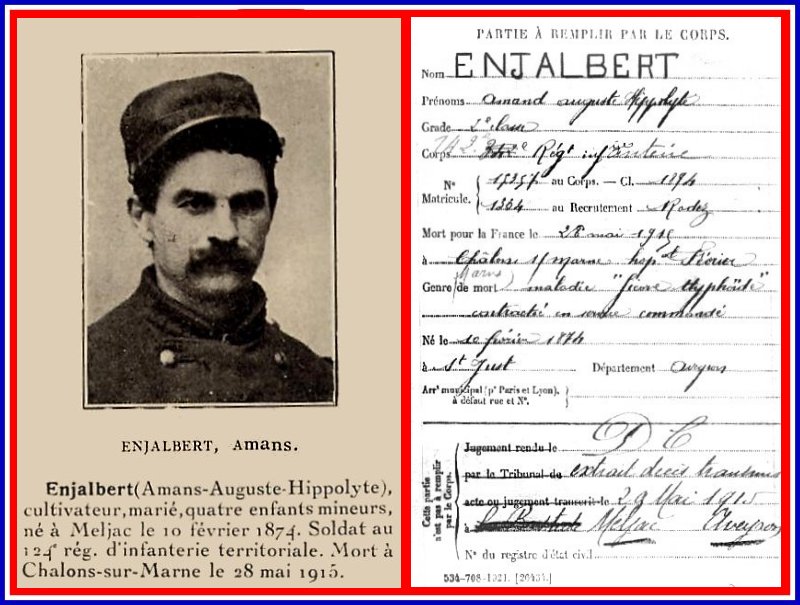 ENJALBERT, Amans.
Enjalbert (Amans-Auguste-Hippolyte),
cultivateur, marié, quatre enfants mineurs,
né à Meljac le 10 février 1874. Soldat au
124e rég. d'infanterie territoriale. Mort à
Chalons-sur-Marne le 28 mai 1915.
PARTIE À REMPLIR PAR LE CORPS.
Nom ENJALBERT
Prénoms Amand Auguste Hippolyte
Grade 2e classe
Corps 142e Régt infanterie
No 15357 au Corps. — Cl. 1894
Matricule. 1364 au Recrutement Rodez
Mort pour la France le 28 mai 1915
à Châlons s/ marne hopal
(Marne)
Genre de mort maladie "fièvre thyphoïde"
contractée en service commandé
Né le 10 février 1874
à St Just Département aveyron
Arrt municipal (pr Paris et Lyon),
à défaut rue et No.
D C
Cette partie n'est pas à remplir par le Corps.
Jugement rendu le
par le Tribunal de extrait décès transmis
acte ou jugement transcrit le 29 Mai 1915
à Meljac Aveyron
No du registre d'état civil
534-708-1921. [20434.]